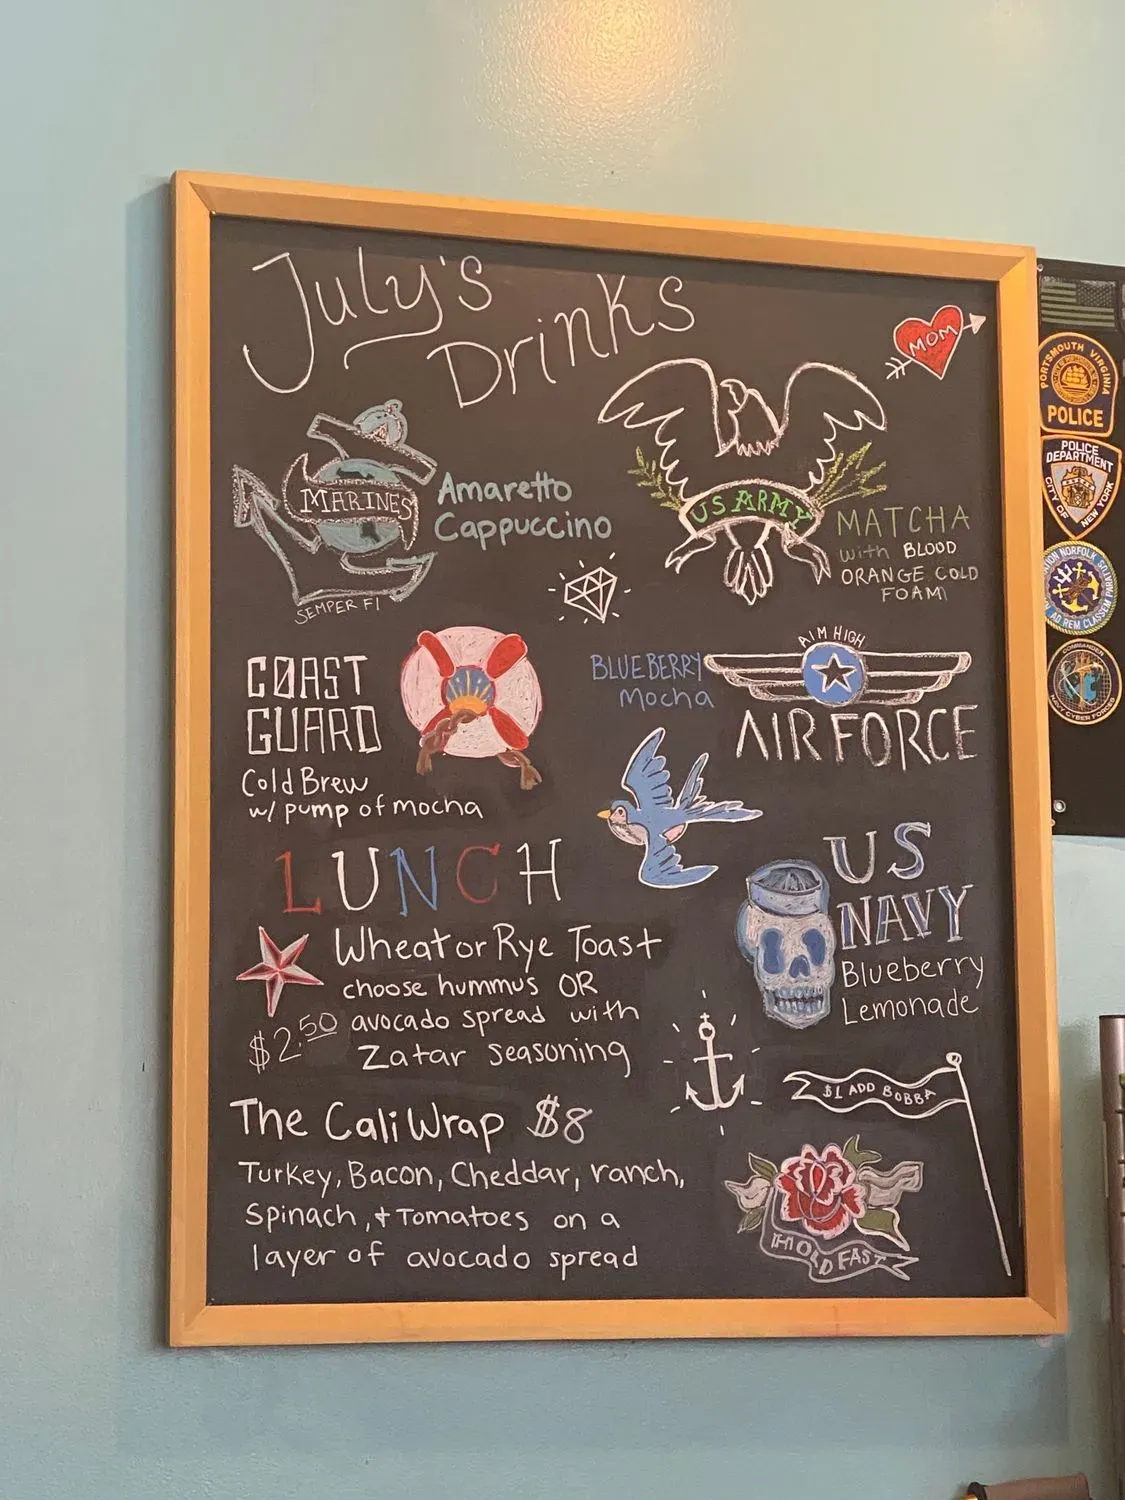 July's
Drinks
MOM
MARINES
SEMPER FI
Amaretto
Cappuccino
US ARMY
MATCHA
with BLOOD
ORANGE COLD
FOAM
COAST
GUARD
Cold Brew
w/ pump of mocha
BLUEBERRY
Mocha
AIM HIGH
AIR FORCE
US
NAVY
Blueberry
Lemonade
LUNCH
Wheat or Rye Toast
choose hummus OR
$2.50 avocado spread with
Zatar seasoning
$1 ADD BOBBA
The Cali Wrap $8
Turkey, Bacon, Cheddar, ranch,
Spinach, + Tomatoes on a
layer of avocado spread
HOLD FAST
PORTSMOUTH VIRGINIA
POLICE
POLICE
DEPARTMENT
CITY OF NEW YORK
NORFOLK
AD REM CLASSEM PARATUS
COMMANDER
NAVY CYBER FORCES